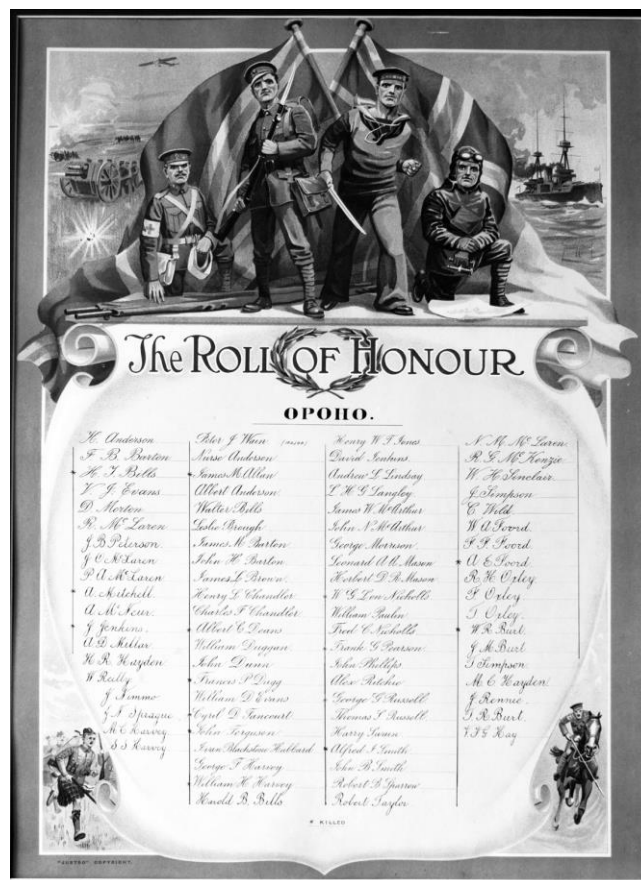 The ROLL OF HONOUR
OPOHO.
H. Anderson
F. B. Barton
* H. T. Bells
V. J. Evans
D. Morton
R. McLaren
J. B. Peterson.
J. C. McLaren
P. A. McLaren
* A. Mitchell
A. McNeur.
* J. Jenkins.
A. D. Millar
H. R. Hayden
W. Reilly
J. Nimmo
Sprague
M. C. Harvey
S. S. Harvey
Peter J. Wain
Nurse Anderson
* James M. Allan
Albert Anderson
Walter Bells
Leslie Brough
James W. Barton
John H. Barton
James L. Brown
Henry L. Chandler
Charles F. Chandler
* Albert C. Deans
William Duggan
John Dunn
* Francis P. Dugg
William D. Evans
* Cyril D. Fancourt
* John Ferguson
Ivan Blackstone Hubbard
George T. Harvey
* William H. Harvey
Harold B. Bells
Henry W. T. Jones
David Jenkins
Andrew L. Lindsay
L. H. G. Langley
James W. McArthur
John N. McArthur
George Morrison
Leonard A. Mason
Herbert D. R. Mason
* W. G. Don Nicholls
William Paulin
Fred C. Nicholls
* Frank G. Pearson
John Phillips
Alex Ritchie
* George G. Russell
Thomas F. Russell
Harry Swan
* Alfred J. Smith
John B. Smith
Robert B. Sparrow
Robert Taylor
N. M. McLaren
R. G. McKenzie
W. H. Sinclair
J. Simpson
C. Wild
W. A. Foord
Foord
* A. E. Foord
R. H. Oxley
P. Oxley
T. Oxley.
* W. R. Burt
J. M. Burt
Simpson
M. C. Hayden
J. Rennie
Burt
Hay
* KILLED
"JUSTED" COPYRIGHT.